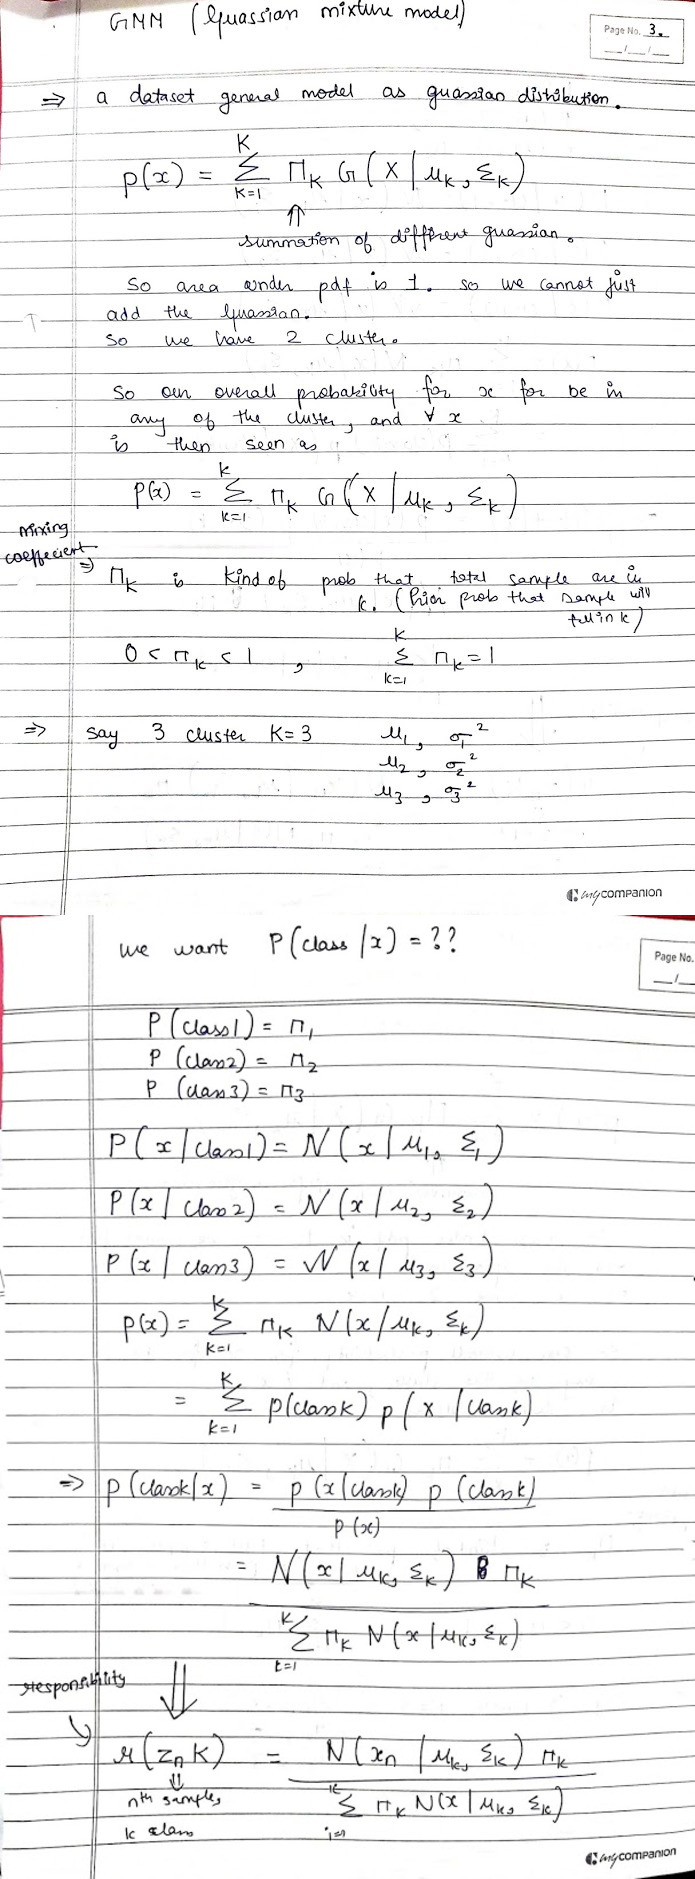 GMM (Guassian mixture model)
Page No. 3.
⇒ a dataset general model as guassian distribution.
p(x) = K Σ K=1 Π_K G(X | μ_K, Σ_K)
⇑
summation of different guassian.
So area under pdf is 1. so we cannot just
add the Guassian.
So we have 2 cluster.
So our overall probability for x for be in
any of the cluster, and ∀ x
is then seen as
P(x) = k Σ k=1 π_k G(X | μ_k, Σ_k)
mixing
coeffecient
⇒ Π_k is kind of prob that total sample are in
k. (Prior prob that sample will
fall in k)
0 < π_k < 1 , k Σ k=1 π_k = 1
⇒ say 3 cluster K=3 μ_1, σ_1²
μ_2, σ_2²
μ_3, σ_3²
mycompanion
we want P(class/x) = ??
Page No.
P(class1) = π_1
P(class2) = π_2
P(class3) = π_3
P(x/class1) = N(x | μ_1, Σ_1)
P(x | class2) = N(x | μ_2, Σ_2)
P(x | class3) = N(x | μ_3, Σ_3)
p(x) = K Σ k=1 π_K N(x/μ_K, Σ_k)
= K Σ k=1 p(class k) p(x | class k)
⇒ p(class k/x) = p(x | class k) p(class k)
p(x)
= N(x | μ_K, Σ_K) π_K
K Σ t=1 π_k N(x | μ_k, Σ_k)
responsibility
⇓
r(z_n K) = N(x_n | μ_k, Σ_k) π_k
⇓
nth samples, K Σ i=1 π_k N(x | μ_k, Σ_k)
k class
mycompanion